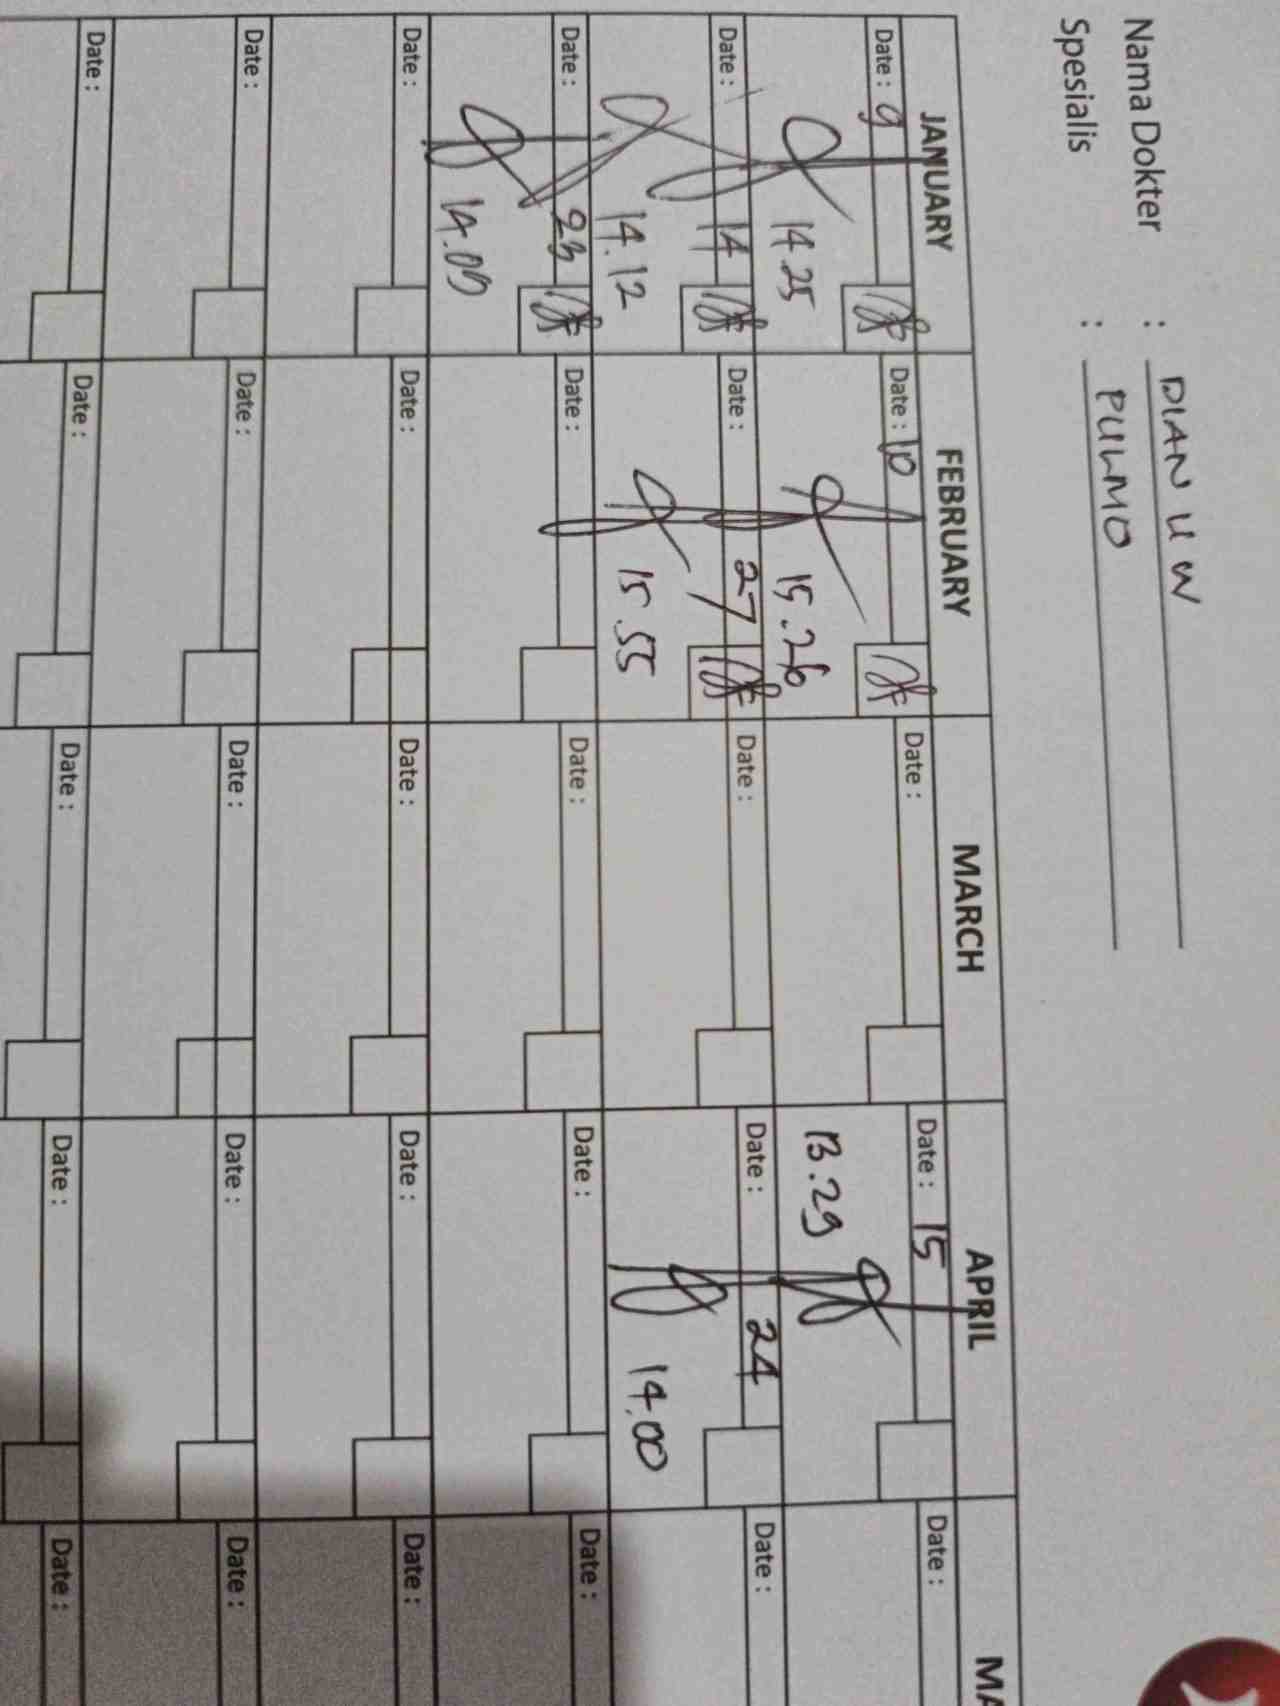 Nama Dokter : DIAN U W
Spesialis : PULMO
JANUARY FEBRUARY MARCH APRIL MA
Date : 9 Date : 10 Date : Date : 15 Date :
14.25 15.26 13.29
Date : 14 Date : 27 Date : Date : 24 Date :
14.12 15.55 14.00
Date : 23 Date : Date : Date : Date :
14.09
Date : Date : Date : Date : Date :
Date : Date : Date : Date : Date :
Date : Date : Date : Date : Date :